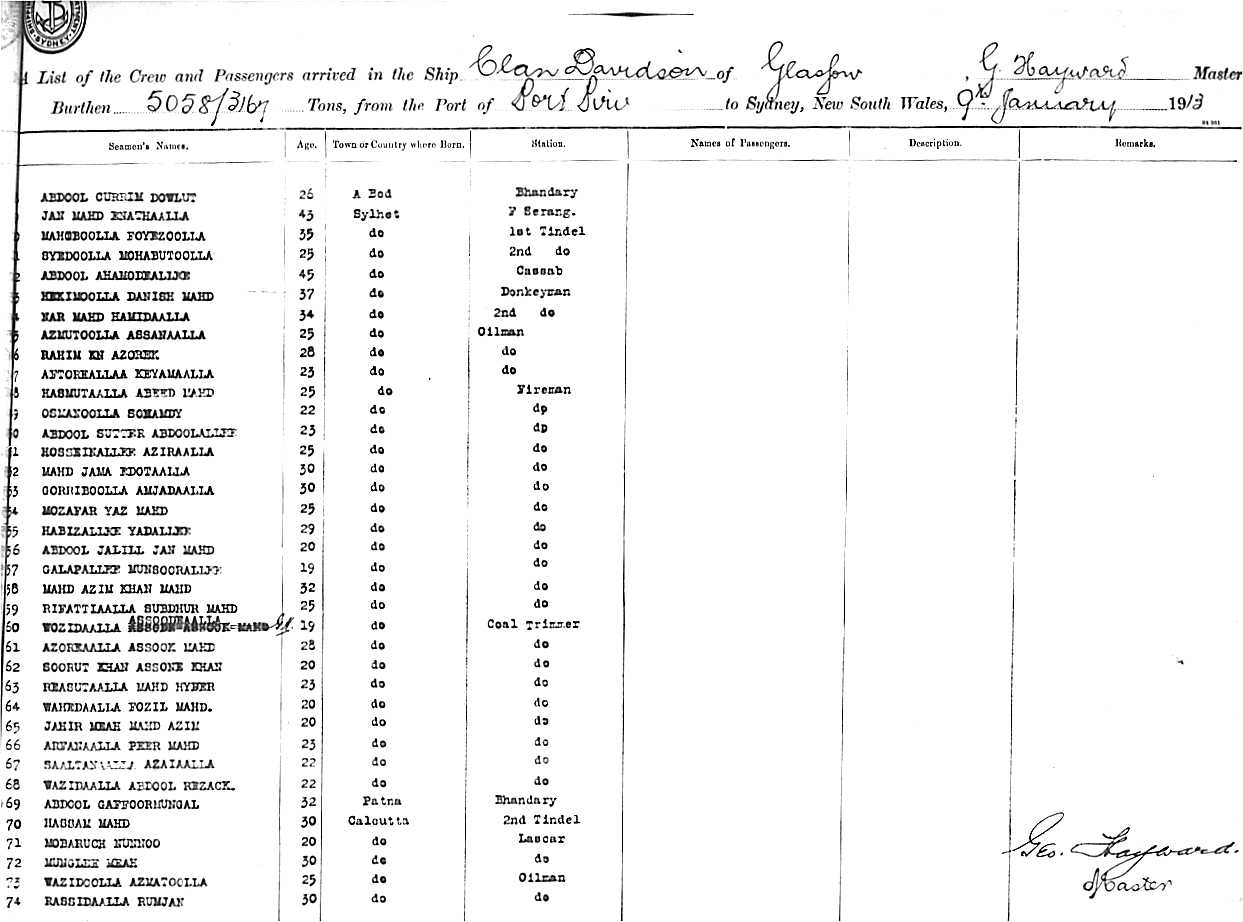 SYDNEY
List of the Crew and Passengers arrived in the Ship Clan Davidson of Glasgow, G. Hayward Master
Burthen 5058/3167 Tons, from the Port of Port Pirie to Sydney, New South Wales, 9th January 1913
Seamen's Names. Age. Town or Country where Born. Station. Names of Passengers. Description. Remarks.
ABDOOL CURRIM DOWLUT 26 A Bod Bhandary
JAN MAHD ENATHAALLA 43 Sylhet F Serang.
MAHOBOOLLA FOYEZOOLLA 35 do 1st Tindel
SYEDOOLLA MOHABUTOOLLA 25 do 2nd do
ABDOOL AHAMODEALLEE 45 do Cassab
HEKIMOOLLA DANISH MAHD 37 do Donkeyman
NAR MAHD HAMIDAALLA 34 do 2nd do
AZMUTOOLLA ASSANAALLA 25 do Oilman
RAHIM KN AZOREK 28 do do
AFTOREALLAA KEYAMAALLA 23 do do
HASMUTAALLA ABEED MAHD 25 do Fireman
OSMANOOLLA SONAMDY 22 do dp
ABDOOL SUTTER ABDOOLALLEE 23 do dp
HOSSEINALLEE AZIRAALLA 25 do do
MAHD JAMA EDOTAALLA 30 do do
GORRIBOOLLA AMJADAALLA 30 do do
MOZAFAR YAZ MAHD 25 do do
55 HABIZALLEE YADALLEE 29 do do
56 ABDOOL JALILL JAN MAHD 20 do do
57 GALAPALLEE MUNSOORALLEE 19 do do
58 MAHD AZIM KHAN MAHD 32 do do
59 RIFATTIAALLA SUBDHUR MAHD 25 do do
60 WOZIDAALLA ASSOODEAALLA 19 do Coal Trimmer
61 AZOREAALLA ASSOOK MAHD 28 do do
62 SOORUT KHAN ASSONE KHAN 20 do do
63 REASUTAALLA MAHD HYDER 23 do do
64 WAHEDAALLA FOZIL MAHD. 20 do do
65 JAHIR MEAH MAHD AZIM 20 do do
66 ARFANAALLA PEER MAHD 23 do do
67 AZAIAALLA 22 do do
68 WAZIDAALLA ABDOOL REZACK. 22 do do
69 ABDOOL GAFFOORMUNGAL 32 Patna Bhandary
70 HASSAM MAHD 30 Calcutta 2nd Tindel
71 MOBARUCH NUNNOO 20 do Lascar
72 MUNGLEE MEAH 30 do do
73 WAZIDOOLLA AZMATOOLLA 25 do Oilman
74 RASSIDAALLA RUMJAN 30 do do
Geo. Hayward.
Master